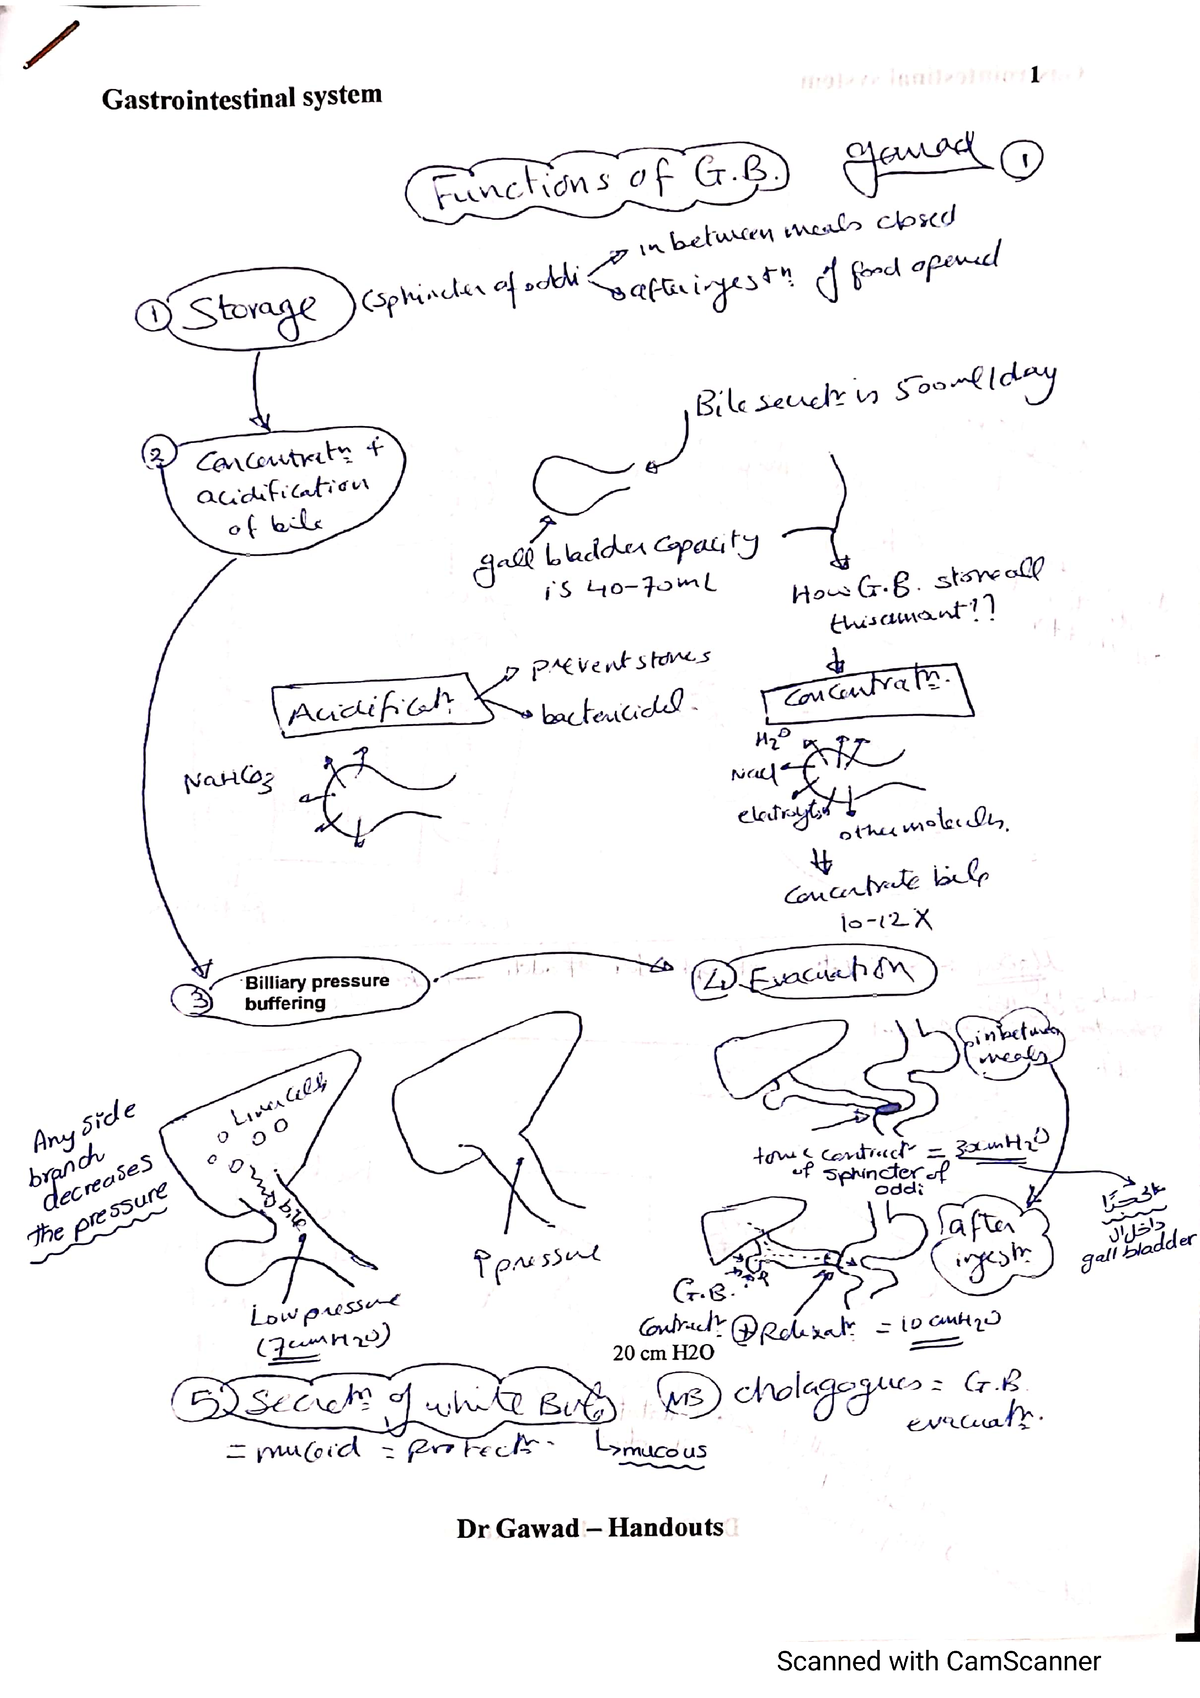 1
Gastrointestinal system
Functions of G.B.
gawad 1
in between meals closed
1 Storage (sphincter of oddi
after ingestn of food opened
Bile secretn is 500ml/day
2 Concentratn +
acidification
of bile
gall bladder capacity
is 40-70mL
How G.B. store all
this amount!?
Acidificatn
prevent stones
bactericidal.
Concentratn.
NaHCO3
H2O
Nacl
electrolytes
other molecules.
Concentrate bile
10-12 X
3 Billiary pressure
buffering
4 Evacuation
in between
meals
Any side
branch
decreases
the pressure
Liver cells
bile
Low pressure
(7cmH2O)
↑ pressure
tonic contractn =
of sphincter of
oddi
after
ingestn
داخل ال
gall bladder
G.B.
Contractn + Relaxatn = 10 cmH2O
20 cm H2O
5 Secretn of white Bile
= mucoid = Protectn.
mucous
NB cholagogues = G.B
evacuatn.
Dr Gawad – Handouts
Scanned with CamScanner